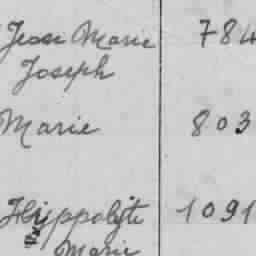 Jean Marie 784
Joseph
Marie 803
Hippolyte 1091
Marie